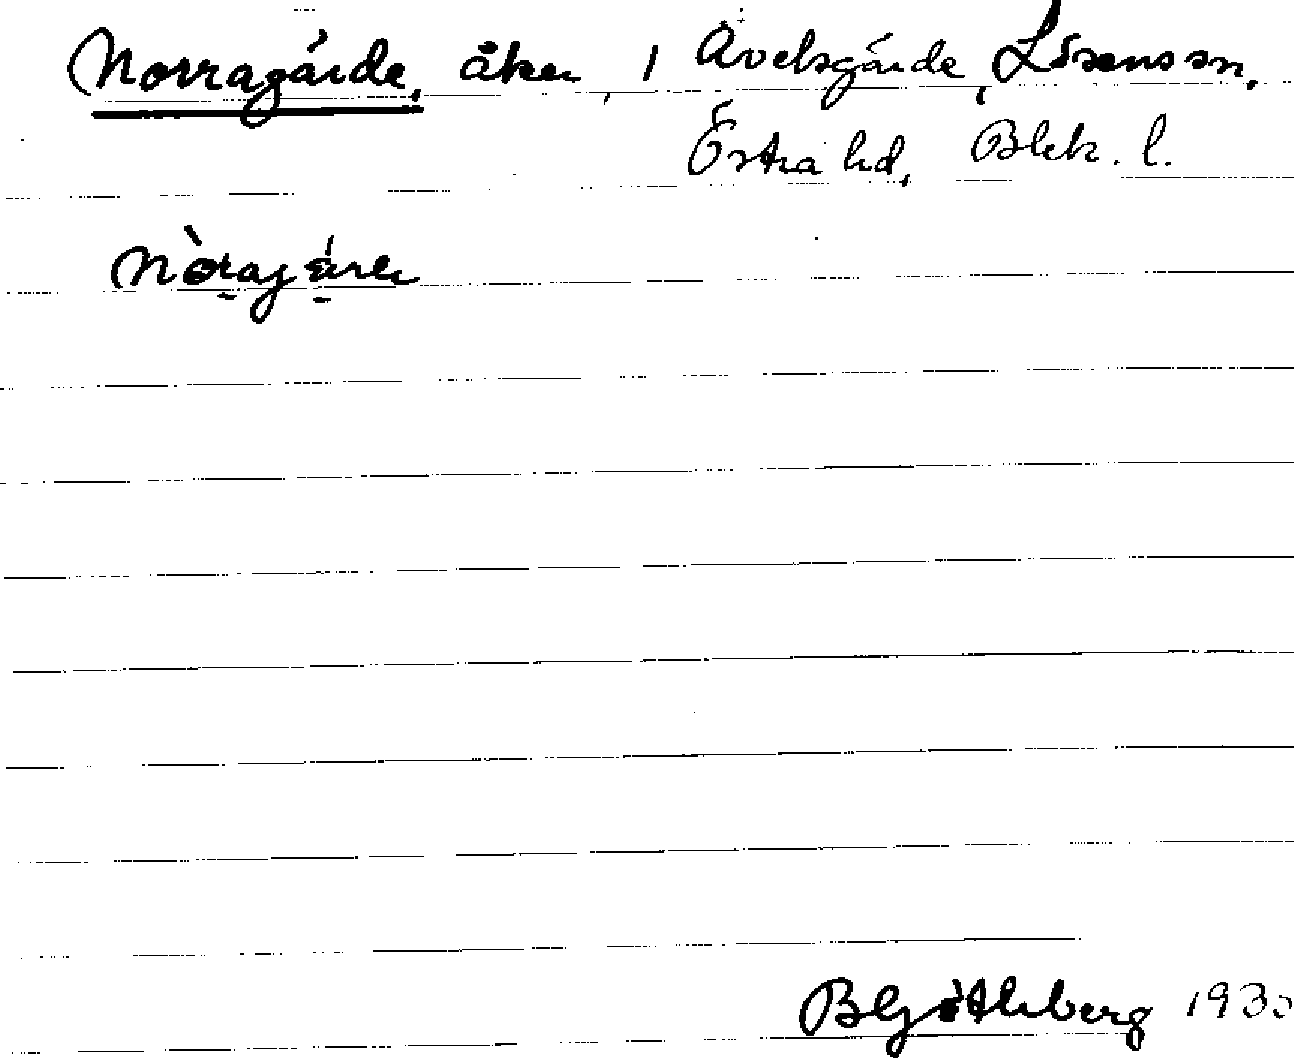 Norragärde, åker, i Avelsgärde, Lösens sn,
Östra hd, Blek. l.
Nòragär
B Götlberg 193